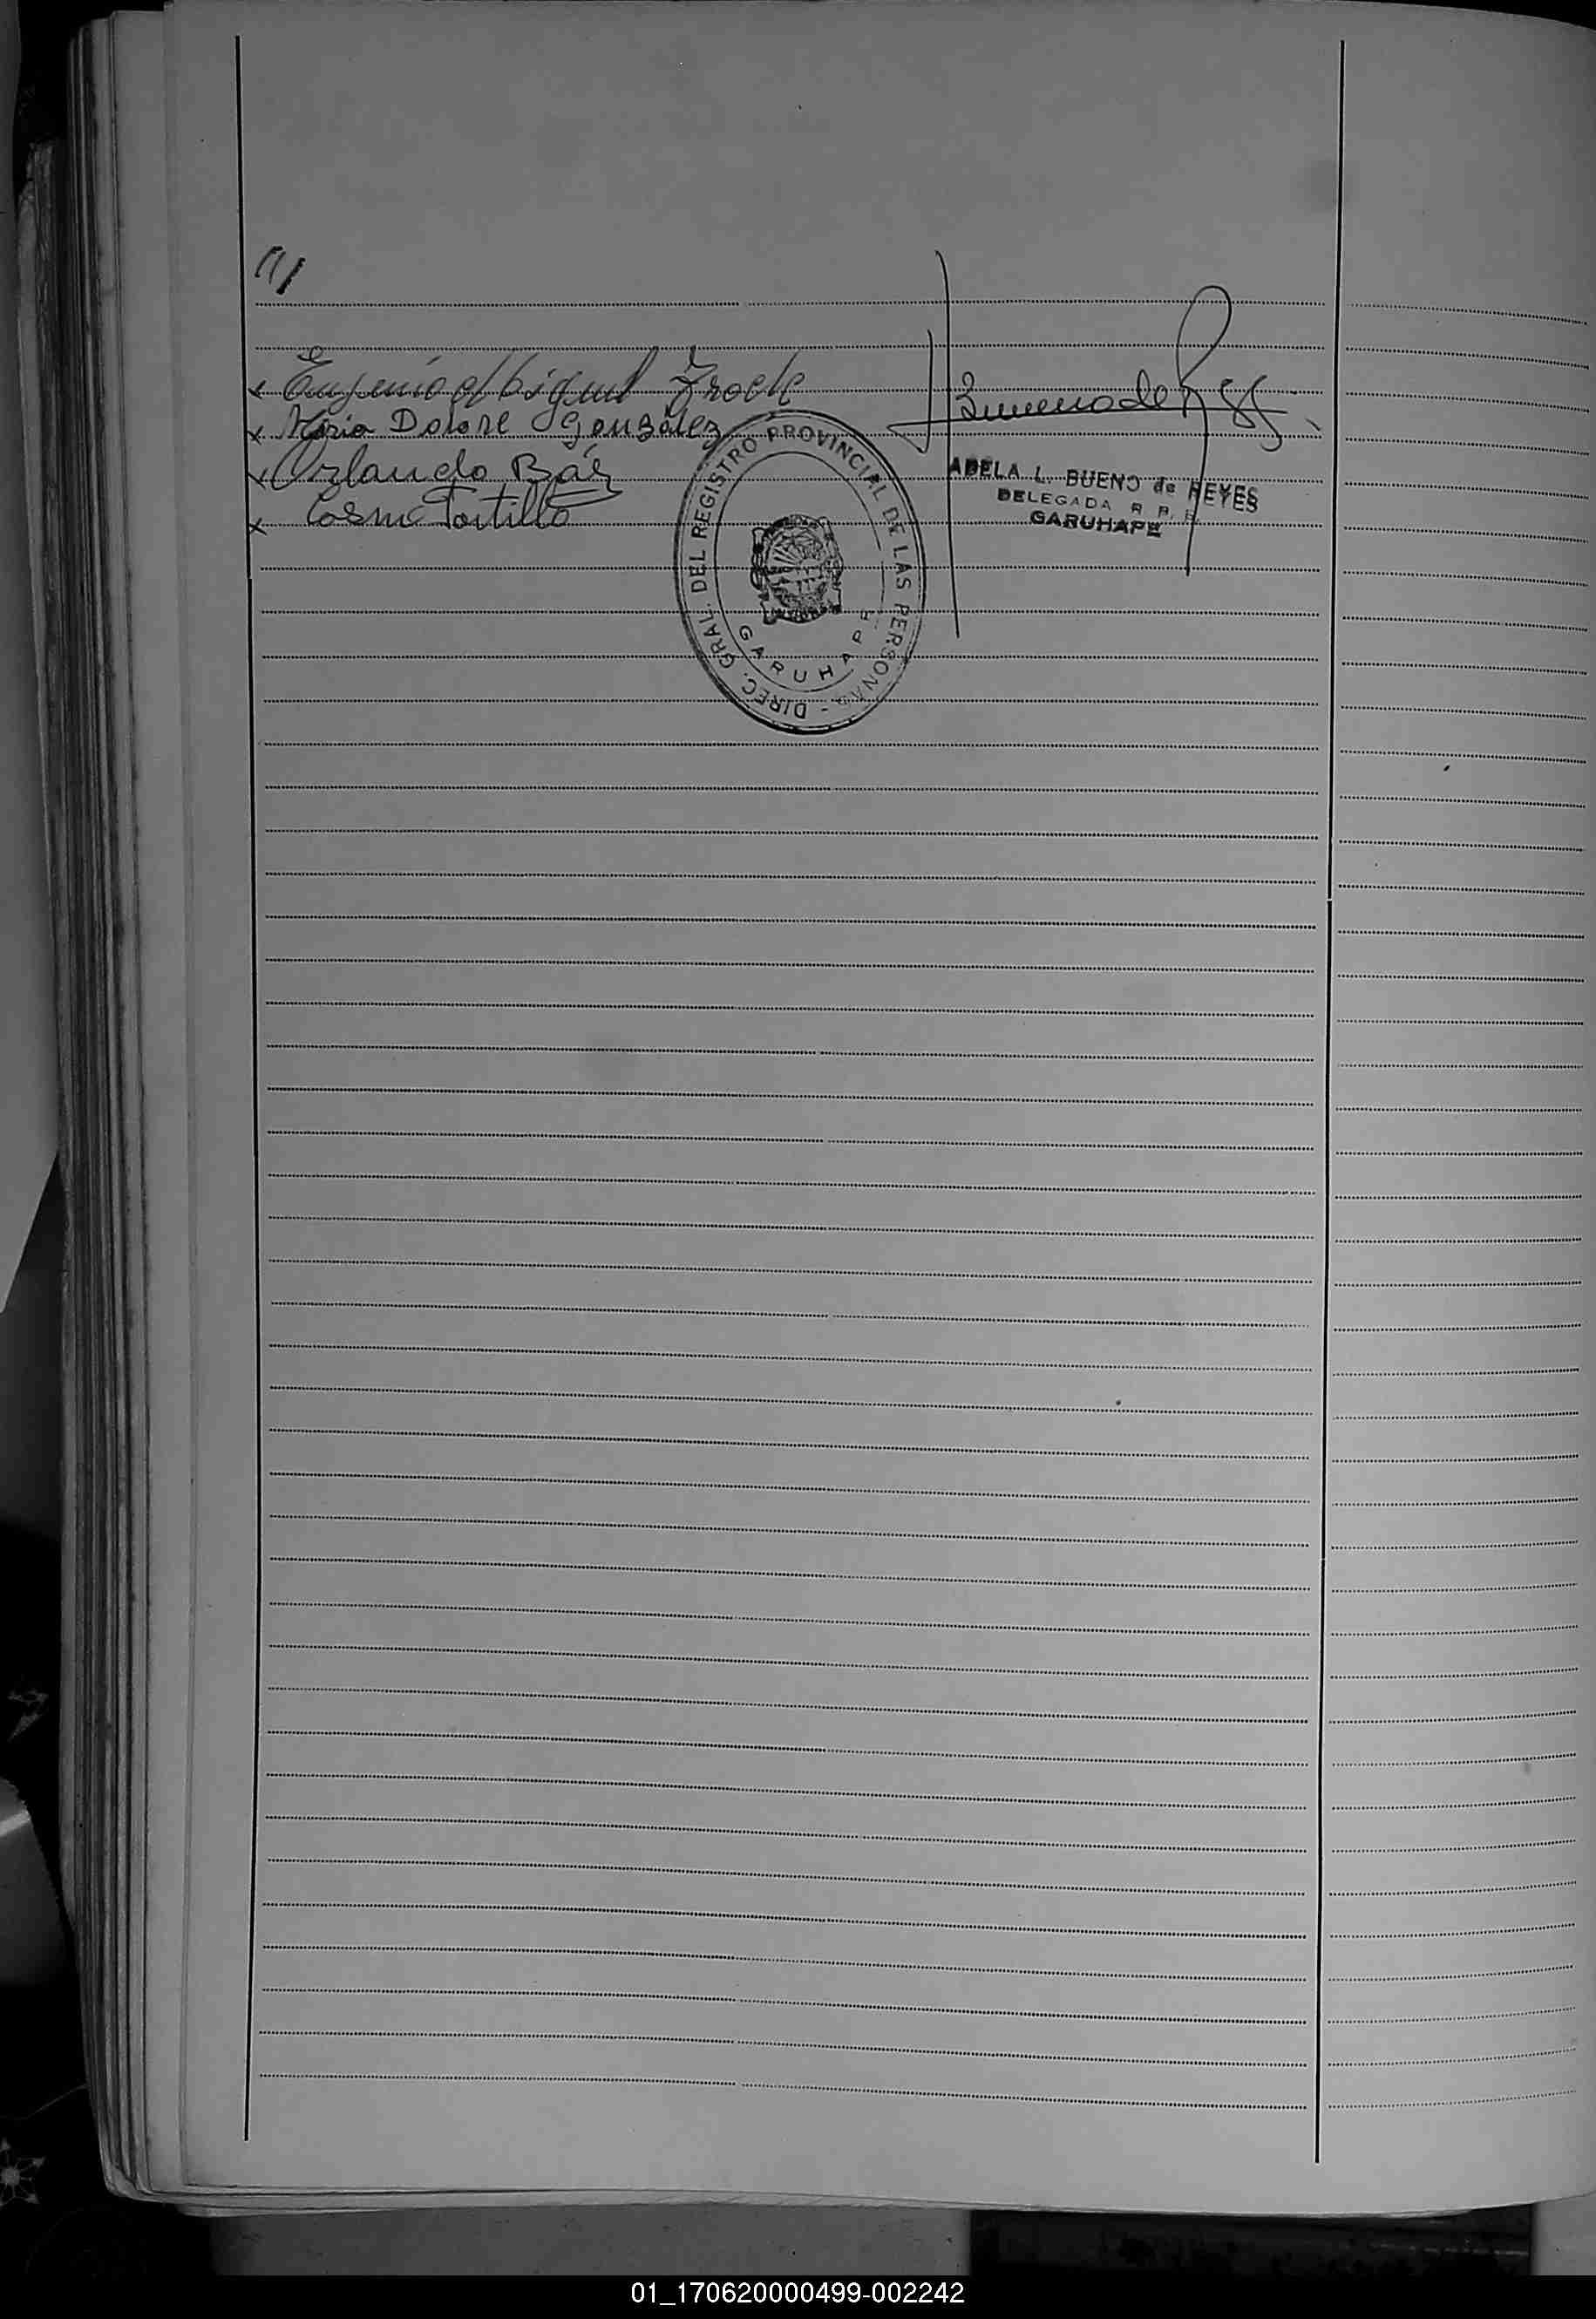 ///
x Eugenio Miguel
x Maria Dolore González
x Orlando Báez
x Cosme Portillo
Bueno de Reyes
ADELA L. BUENO de REYES
DELEGADA R. P. P.
GARUHAPE
DIREC. GRAL. DEL REGISTRO PROVINCIAL DE LAS PERSONAS -
GARUHAPE
01_170620000499-002242